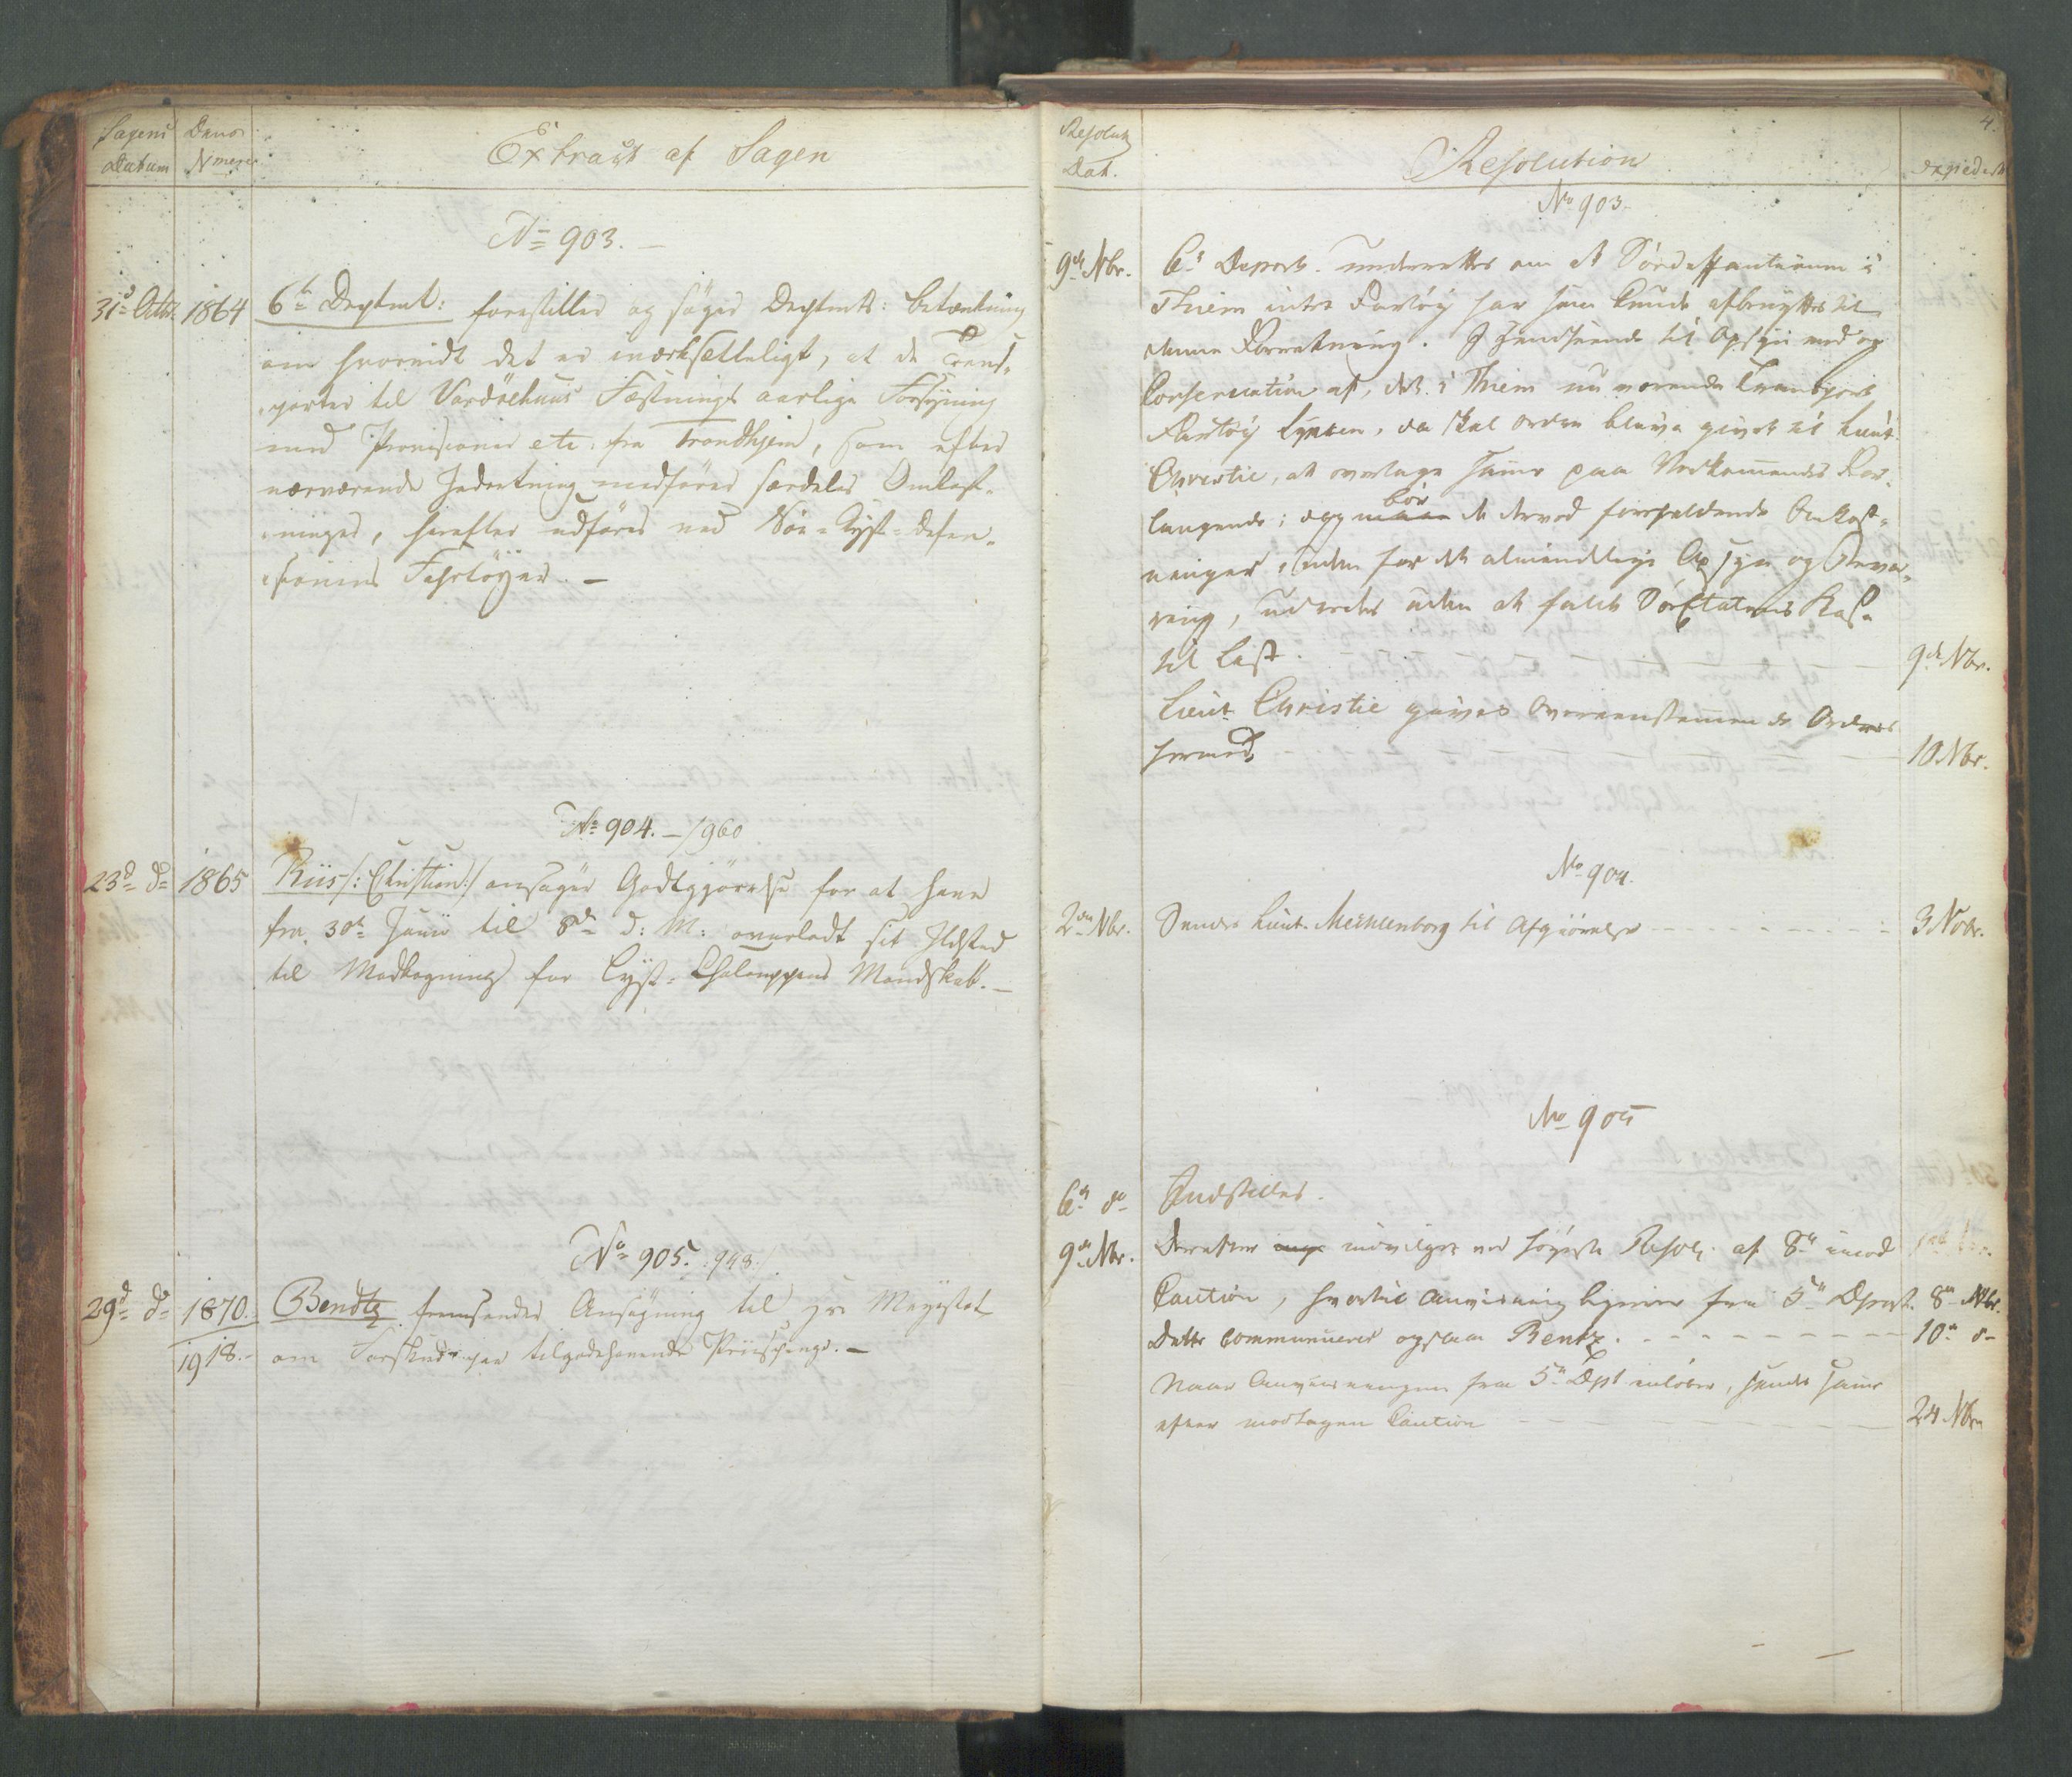 Sagens Datum
Dens Nmere
Extract af Sagen
No 903. –
31d Octbr. 1864 6te Deptmt: forestiller og söger Deptmts: betænkning
om hvorvidt det er iværksetteligt, at de Trans-
porter til Vardöehuus Fæstnings aarlige Forsyning
med Provisioner etc. fra Trondhjem, som efter
nærværende Indretning medförer særdeles Omkost-
ninger, herefter udföres ved Söe-Kyst-Defen-
sionens Fartöyer. –
No 904. – /960
23d do 1865 Riis /: Christian :/ ansöger Godtgjörelse for at have
fra 30te Junii til 8de d: M: overladt sit Ildsted
til Madkogning for Kyst-Chalouppens Mandskab. –
No 905. /948.
29d do 1870. Bendtz fremsender Ansögning til Majestæt
1918. – om Forskud paa tilgodehavende Priisepenge. –
Resolut. Dat.
Resolution
4.
Expedert
No 903.
9de Nbr. 6te Depart. underrettes om at Södeffensionen i
Thiem intet Fartöy har som kunde afbenyttes til
denne Forretning. I Henseende til Opsyn med og
Conservation af det i Thiem nu værende Transport
Fartöy Lynsen, da skal Ordre blive givet til Lieut.
Christie, at overtage samme paa Vedkommendes For-
langende; dog maae bör de derved forefaldende Omkost-
ninger, uden for det almindelige Opsyn og Bevar-
ring, udredes uden at falde SöeEtatens Kasse
til Last. – – – 9de Nbr.
Lieut. Christie gives overeenstemmende Ordre
herved – – – 10 Nbr.
No 904.
2den Nbr. Sendes Lieut. Mechlenborg til Afgiörelse – – – 3 Nobr.
No 905
6te do Indstilles.
9de Nbr. Derefter indvilges ved höyeste Resol. af 8de imod
Caution, hvortil Anviisning fra 5te Depart. 8de Nbr.
Dette communiceres ogsaa Bentz. – – – 10de do
Naar Anviisningen fra 5te Dpt indlöber, sendes samme
efter modtagen Caution – – – 24 Nbr